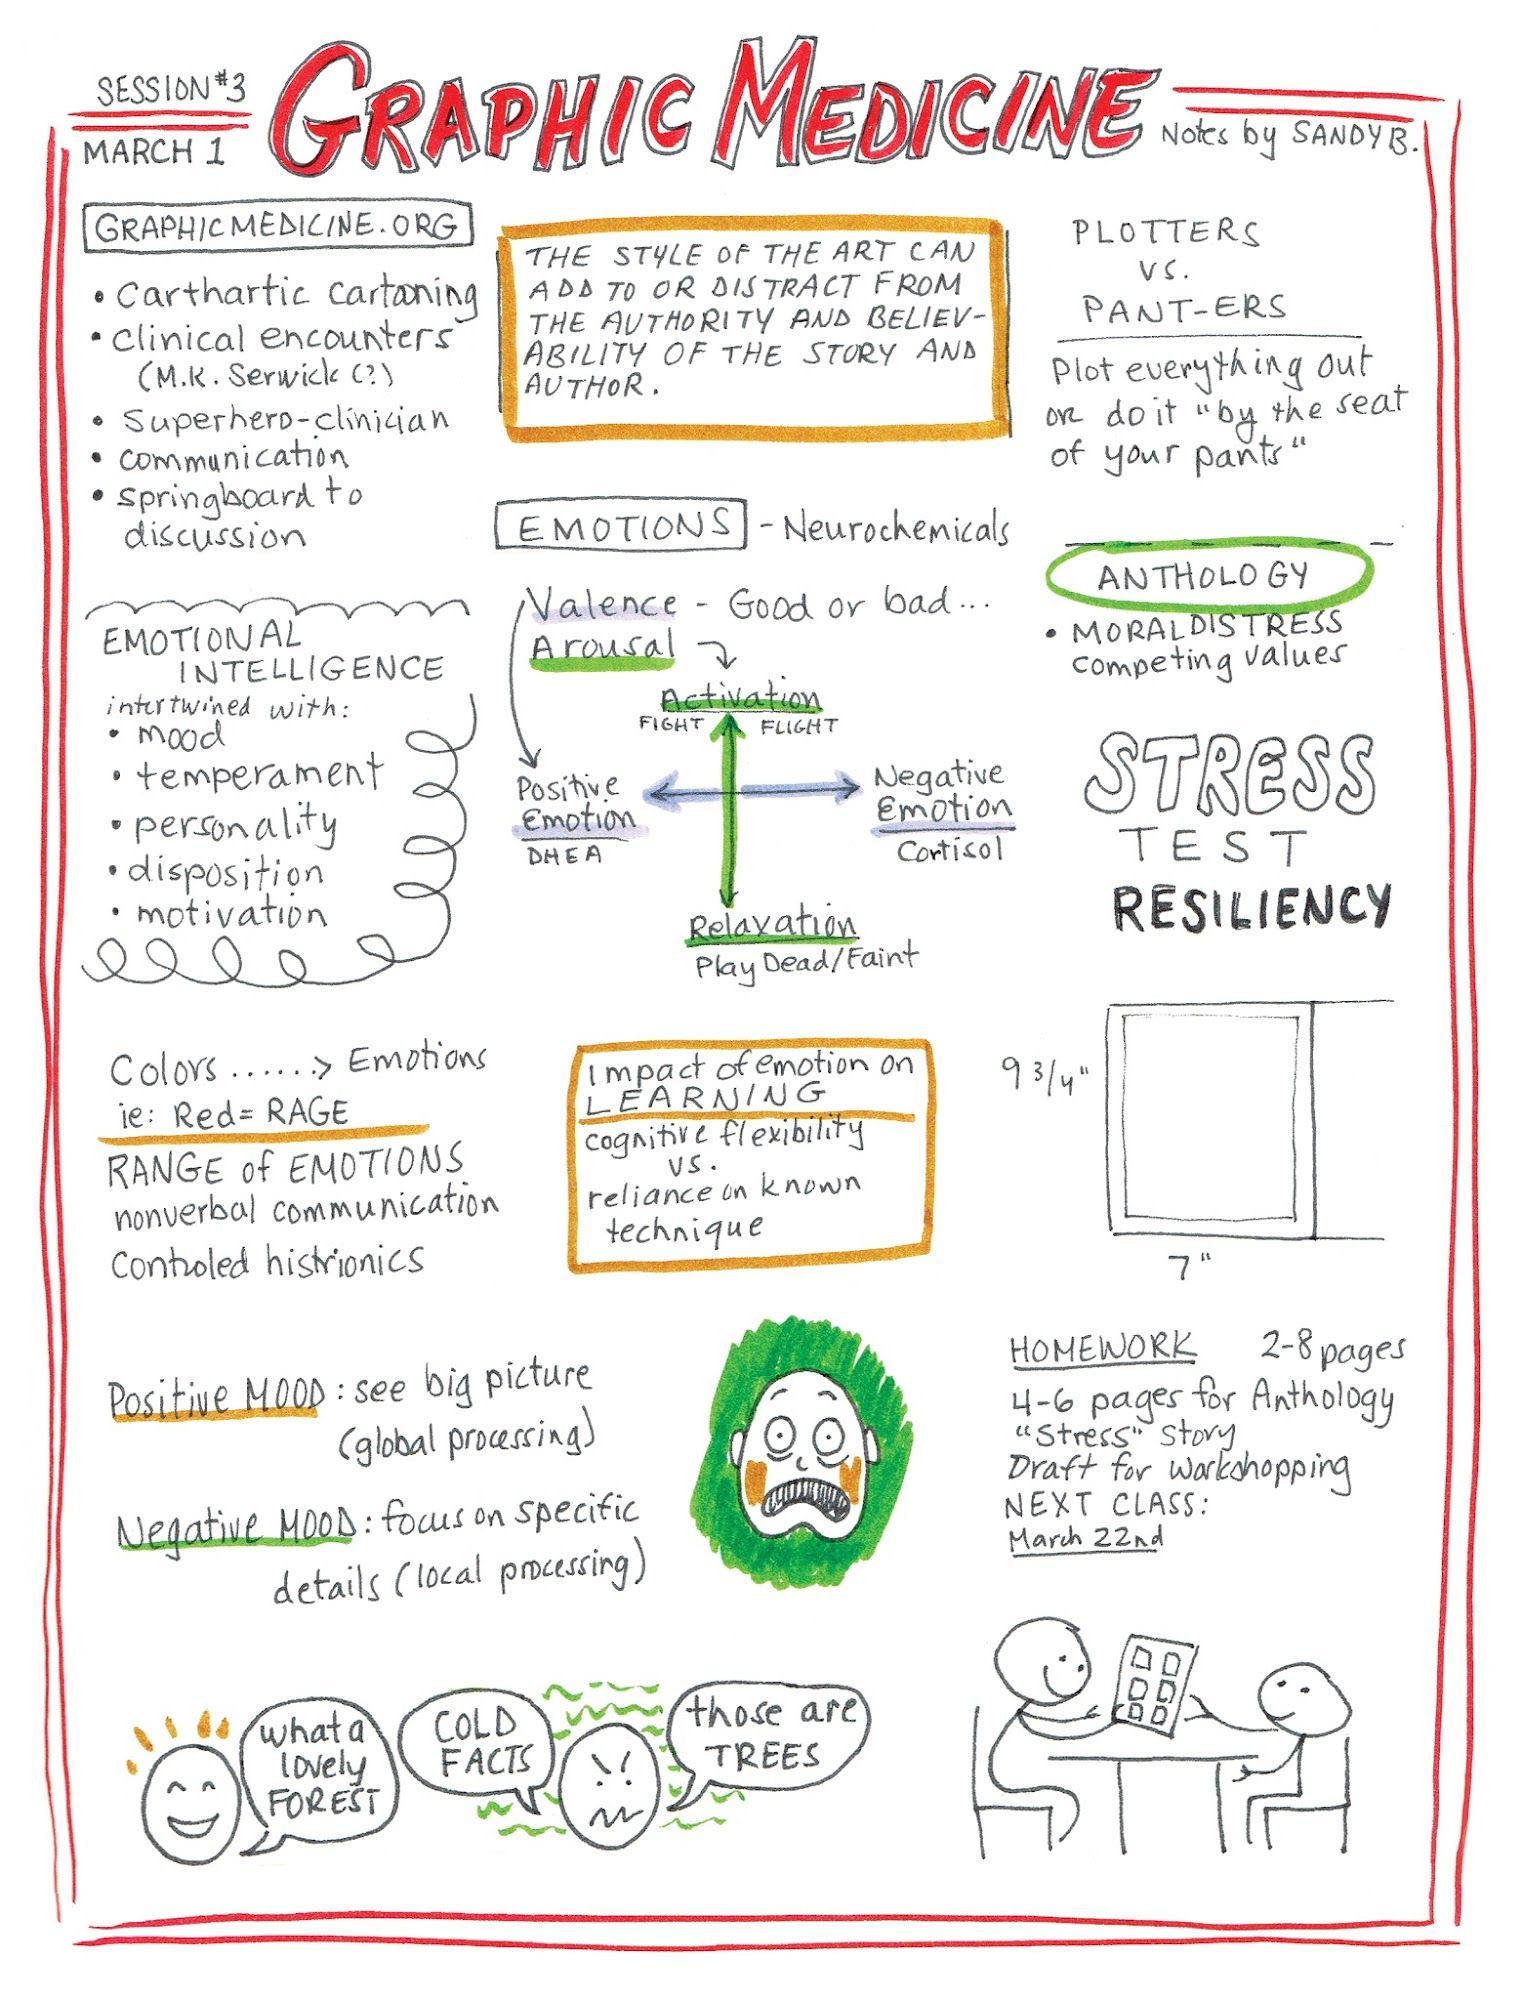 SESSION #3
MARCH 1
GRAPHIC MEDICINE
Notes by SANDY B.
GRAPHICMEDICINE.ORG
• Carthartic cartooning
• Clinical encounters
(M.K. Serwick (?)
• Superhero-clinician
• communication
• springboard to
discussion
THE STYLE OF THE ART CAN
ADD TO OR DISTRACT FROM
THE AUTHORITY AND BELIEV-
ABILITY OF THE STORY AND
AUTHOR.
PLOTTERS
VS.
PANT-ERS
Plot everything out
or do it "by the seat
of your pants"
EMOTIONS - Neurochemicals
Valence - Good or bad...
Arousal
Activation
FIGHT FLIGHT
Positive
Emotion
DHEA
Negative
Emotion
Cortisol
Relaxation
Play Dead/Faint
ANTHOLOGY
• MORAL DISTRESS
competing values
EMOTIONAL
INTELLIGENCE
intertwined with:
• mood
• temperament
• personality
• disposition
• motivation
STRESS
TEST
RESILIENCY
Colors ......> Emotions
ie: Red= RAGE
RANGE of EMOTIONS
nonverbal communication
Controled histrionics
Impact of emotion on
LEARNING
cognitive flexibility
vs.
reliance on known
technique
9 3/4"
7"
Positive MOOD: see big picture
(global processing)
Negative MOOD: focus on specific
details (local processing)
HOMEWORK 2-8 pages
4-6 pages for Anthology
"Stress" Story
Draft for workshopping
NEXT CLASS:
March 22nd
what a
lovely
FOREST
COLD
FACTS
those are
TREES